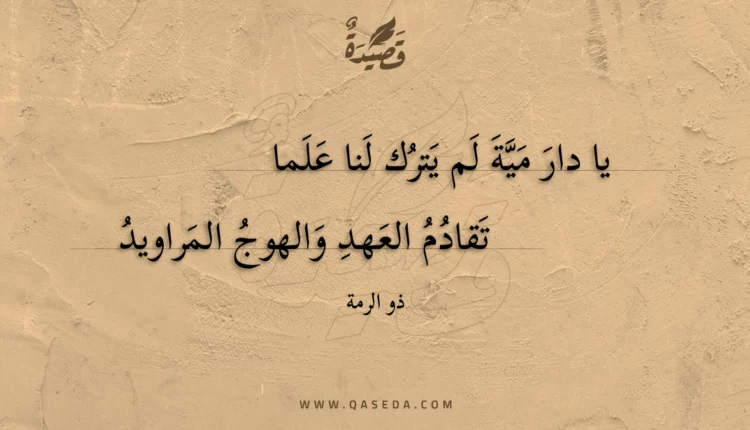 قَصِيْدَةٌ
يا دارَ مَيَّةَ لَم يَترُك لَنا عَلَما
تَقادُمُ العَهدِ وَالهوجُ المَراويدُ
ذو الرمة
WWW.QASEDA.COM